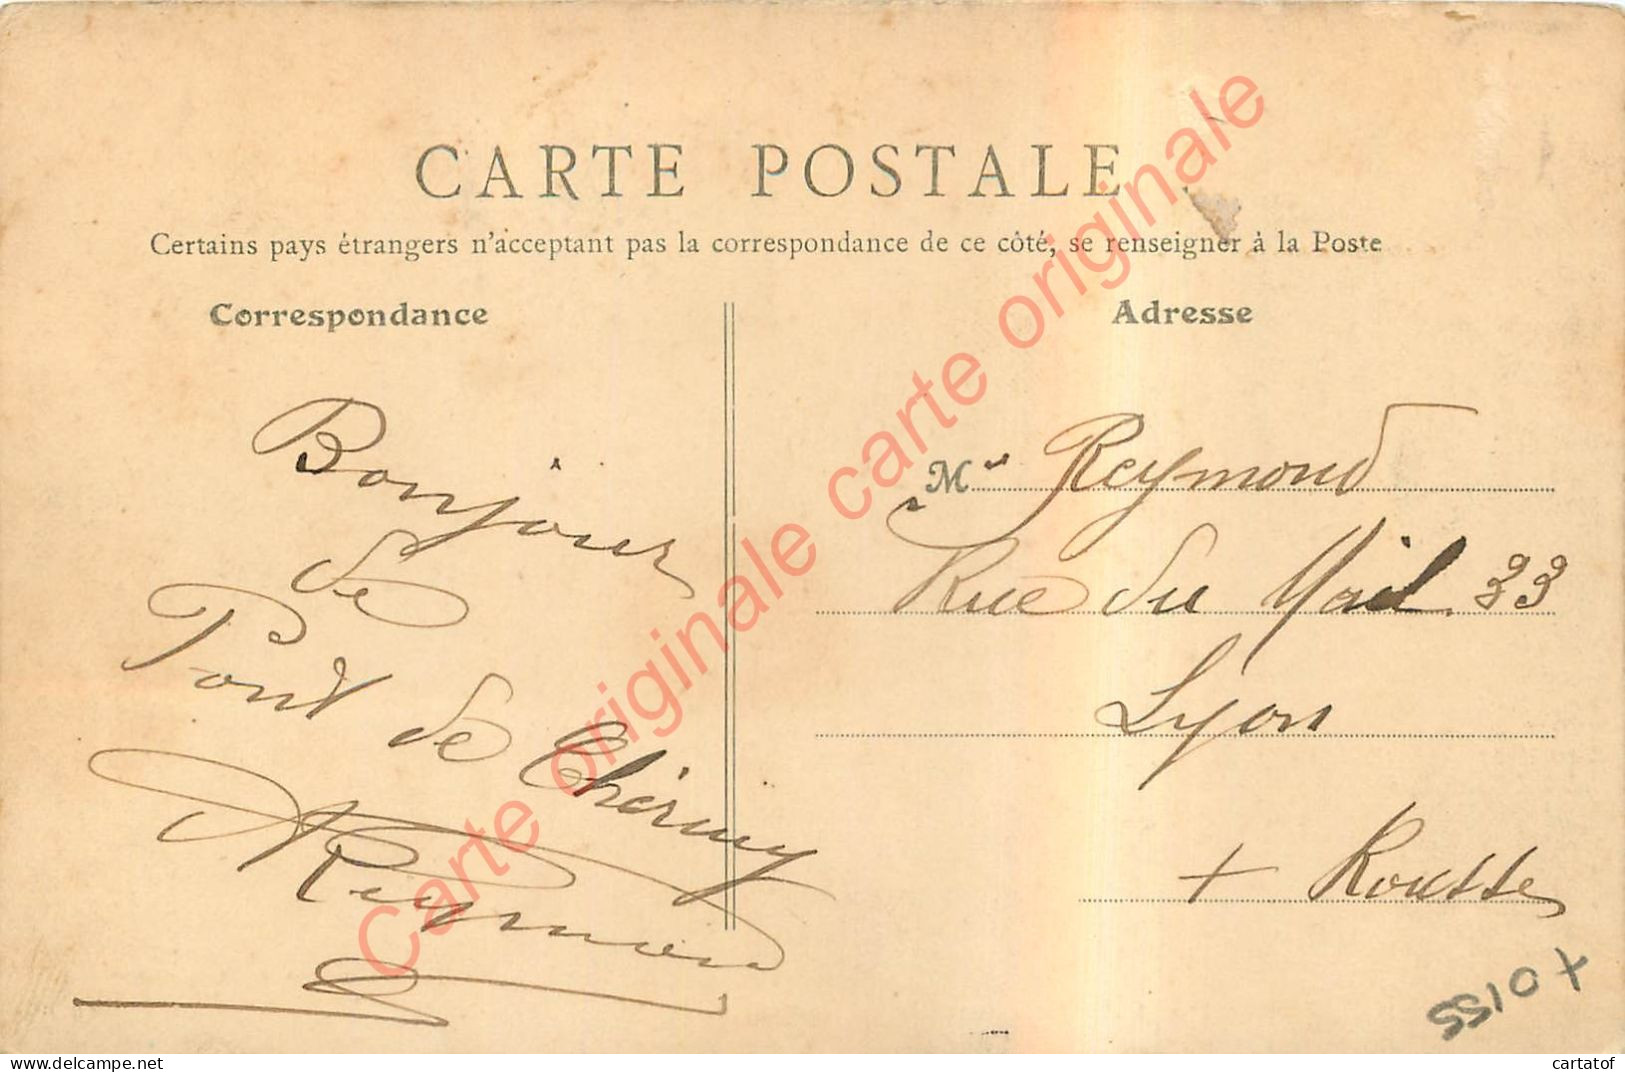 CARTE POSTALE
Certains pays étrangers n'acceptant pas la correspondance de ce côté, se renseigner à la Poste
Correspondance
Adresse
Bonjour
de
Pont de Chéruy
A Reymond
M Reymond
Rue du Mail 33
Lyon
+ Rousse
Carte originale carte originale carte originale
cartatof